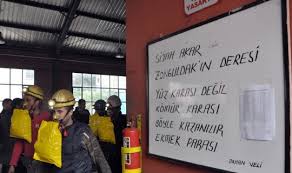 YASAKTIR
SİYAH AKAR
ZONGULDAK'IN DERESİ
YÜZ KARASI DEĞİL
KÖMÜR KARASI
BÖYLE KAZANILIR
EKMEK PARASI
ORHAN VELİ